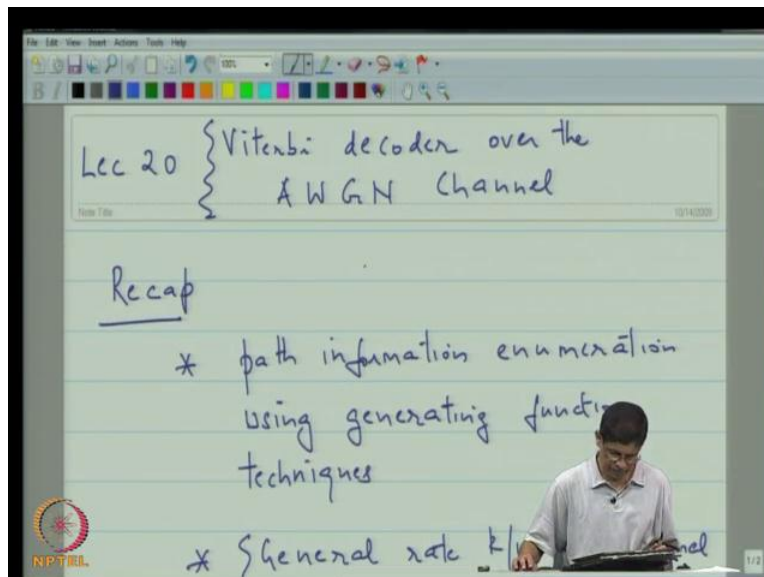 File Edit View Insert Actions Tools Help
100%
B I
Lec 20 Viterbi decoder over the
AWGN Channel
Note Title
10/14/2009
Recap
* path information enumeration
using generating
techniques
* General rate
NPTEL
1/2